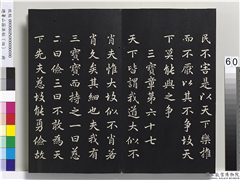 民不害是以天下樂推
而不厭以其不爭故天
下莫能與之爭
三寶章第六十七
天下皆謂我道大似不
肖夫惟大故似不肖若
肖久矣其細也夫我有
三寶寶而持之一曰慈
二曰儉三曰不敢為天
下先夫慈故能勇儉故
60